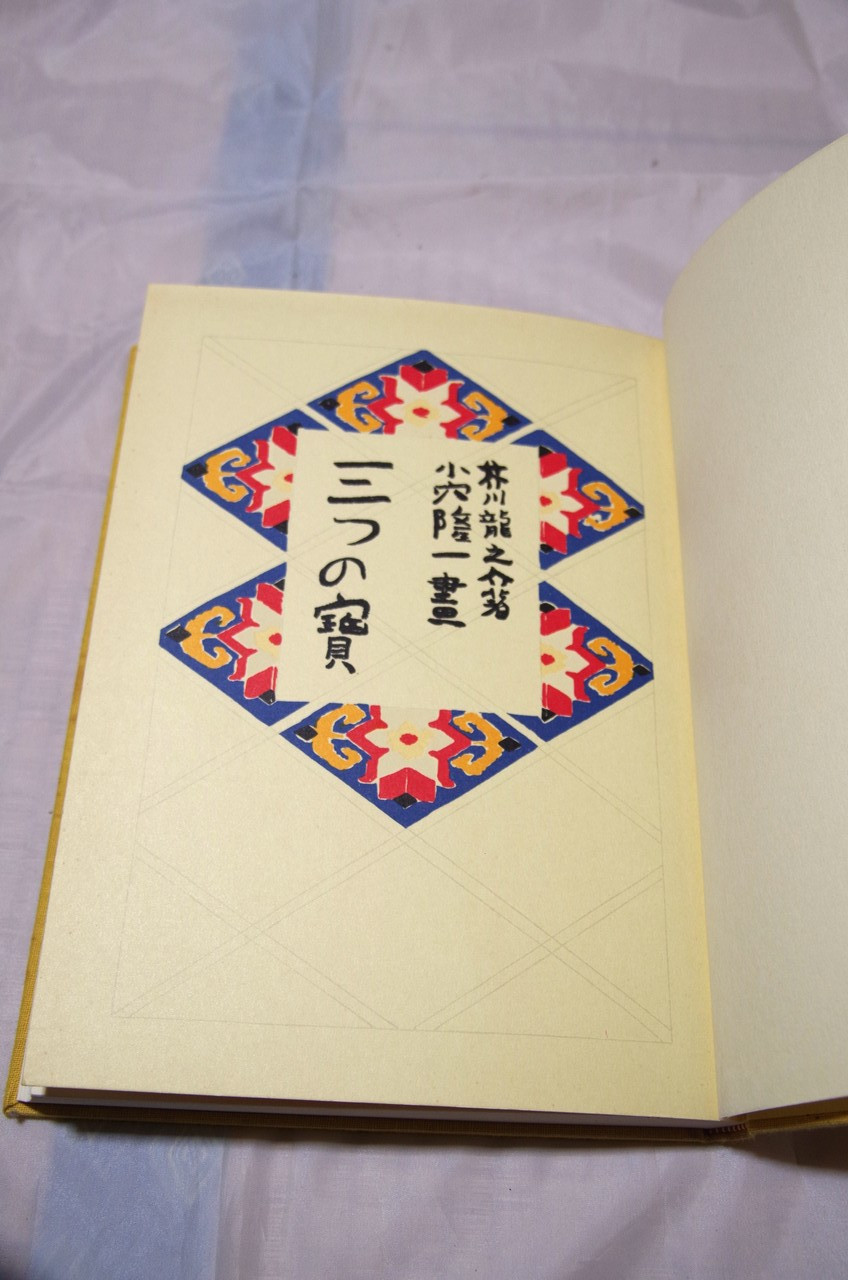 芥川龍之介著
小穴隆一畫
三つの寳